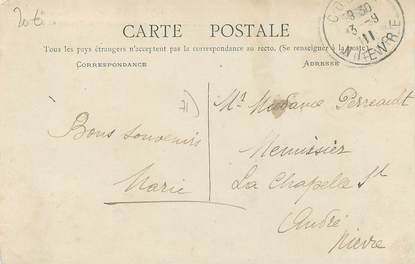 CARTE POSTALE
Tous les pays étrangers n'acceptent pas la correspondance au recto. (Se renseigner à la poste)
CORRESPONDANCE
ADRESSE
18-30
13-9
11
NIEVRE
71)
Bons souvenirs
Marie
Mr Madame Perreault
Menuisier
La Chapelle St
André
Nievre